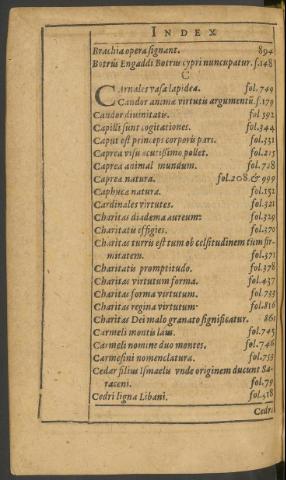 INDEX
Brachia opera signant. 894
Botrus Engaddi Botrus cypri nuncupatur. f.148
C
CArnales vasa lapidea. fol.749
Candor animæ virtutis argumentū. f.179
Candor divinitatis. fol 592
Capilli sunt cogitationes. fol.344
Caput est princeps corporis pars. fol.331
Caprea visu acutissimo pollet. fol.215
Caprea animal mundum. fol.728
Caprea natura. fol.208.& 999
natura. fol.152
Cardinales virtutes. fol.321
Charitas diadema aureum: fol.329
Charitatis effigies. fol.370
Charitas turris est tum ob celsitudinem tum fir-
mitatem. fol.371
Charitatis promptitudo. fol.378
Charitas virtutum forma. fol.437
Charitas forma virtutum. fol.733
Charitas regina virtutum. fol.816
Charitas Dei malo granato significatur. 861
Carmeli montis laus. fol.745
Carmeli nomine duo montes. fol.746
Carmesini nomenclatura. fol.753
Cedar filius Ismaelu vnde originem ducunt Sa-
raceni. fol.79
Cedri ligna Libani. fol.518
Cedri